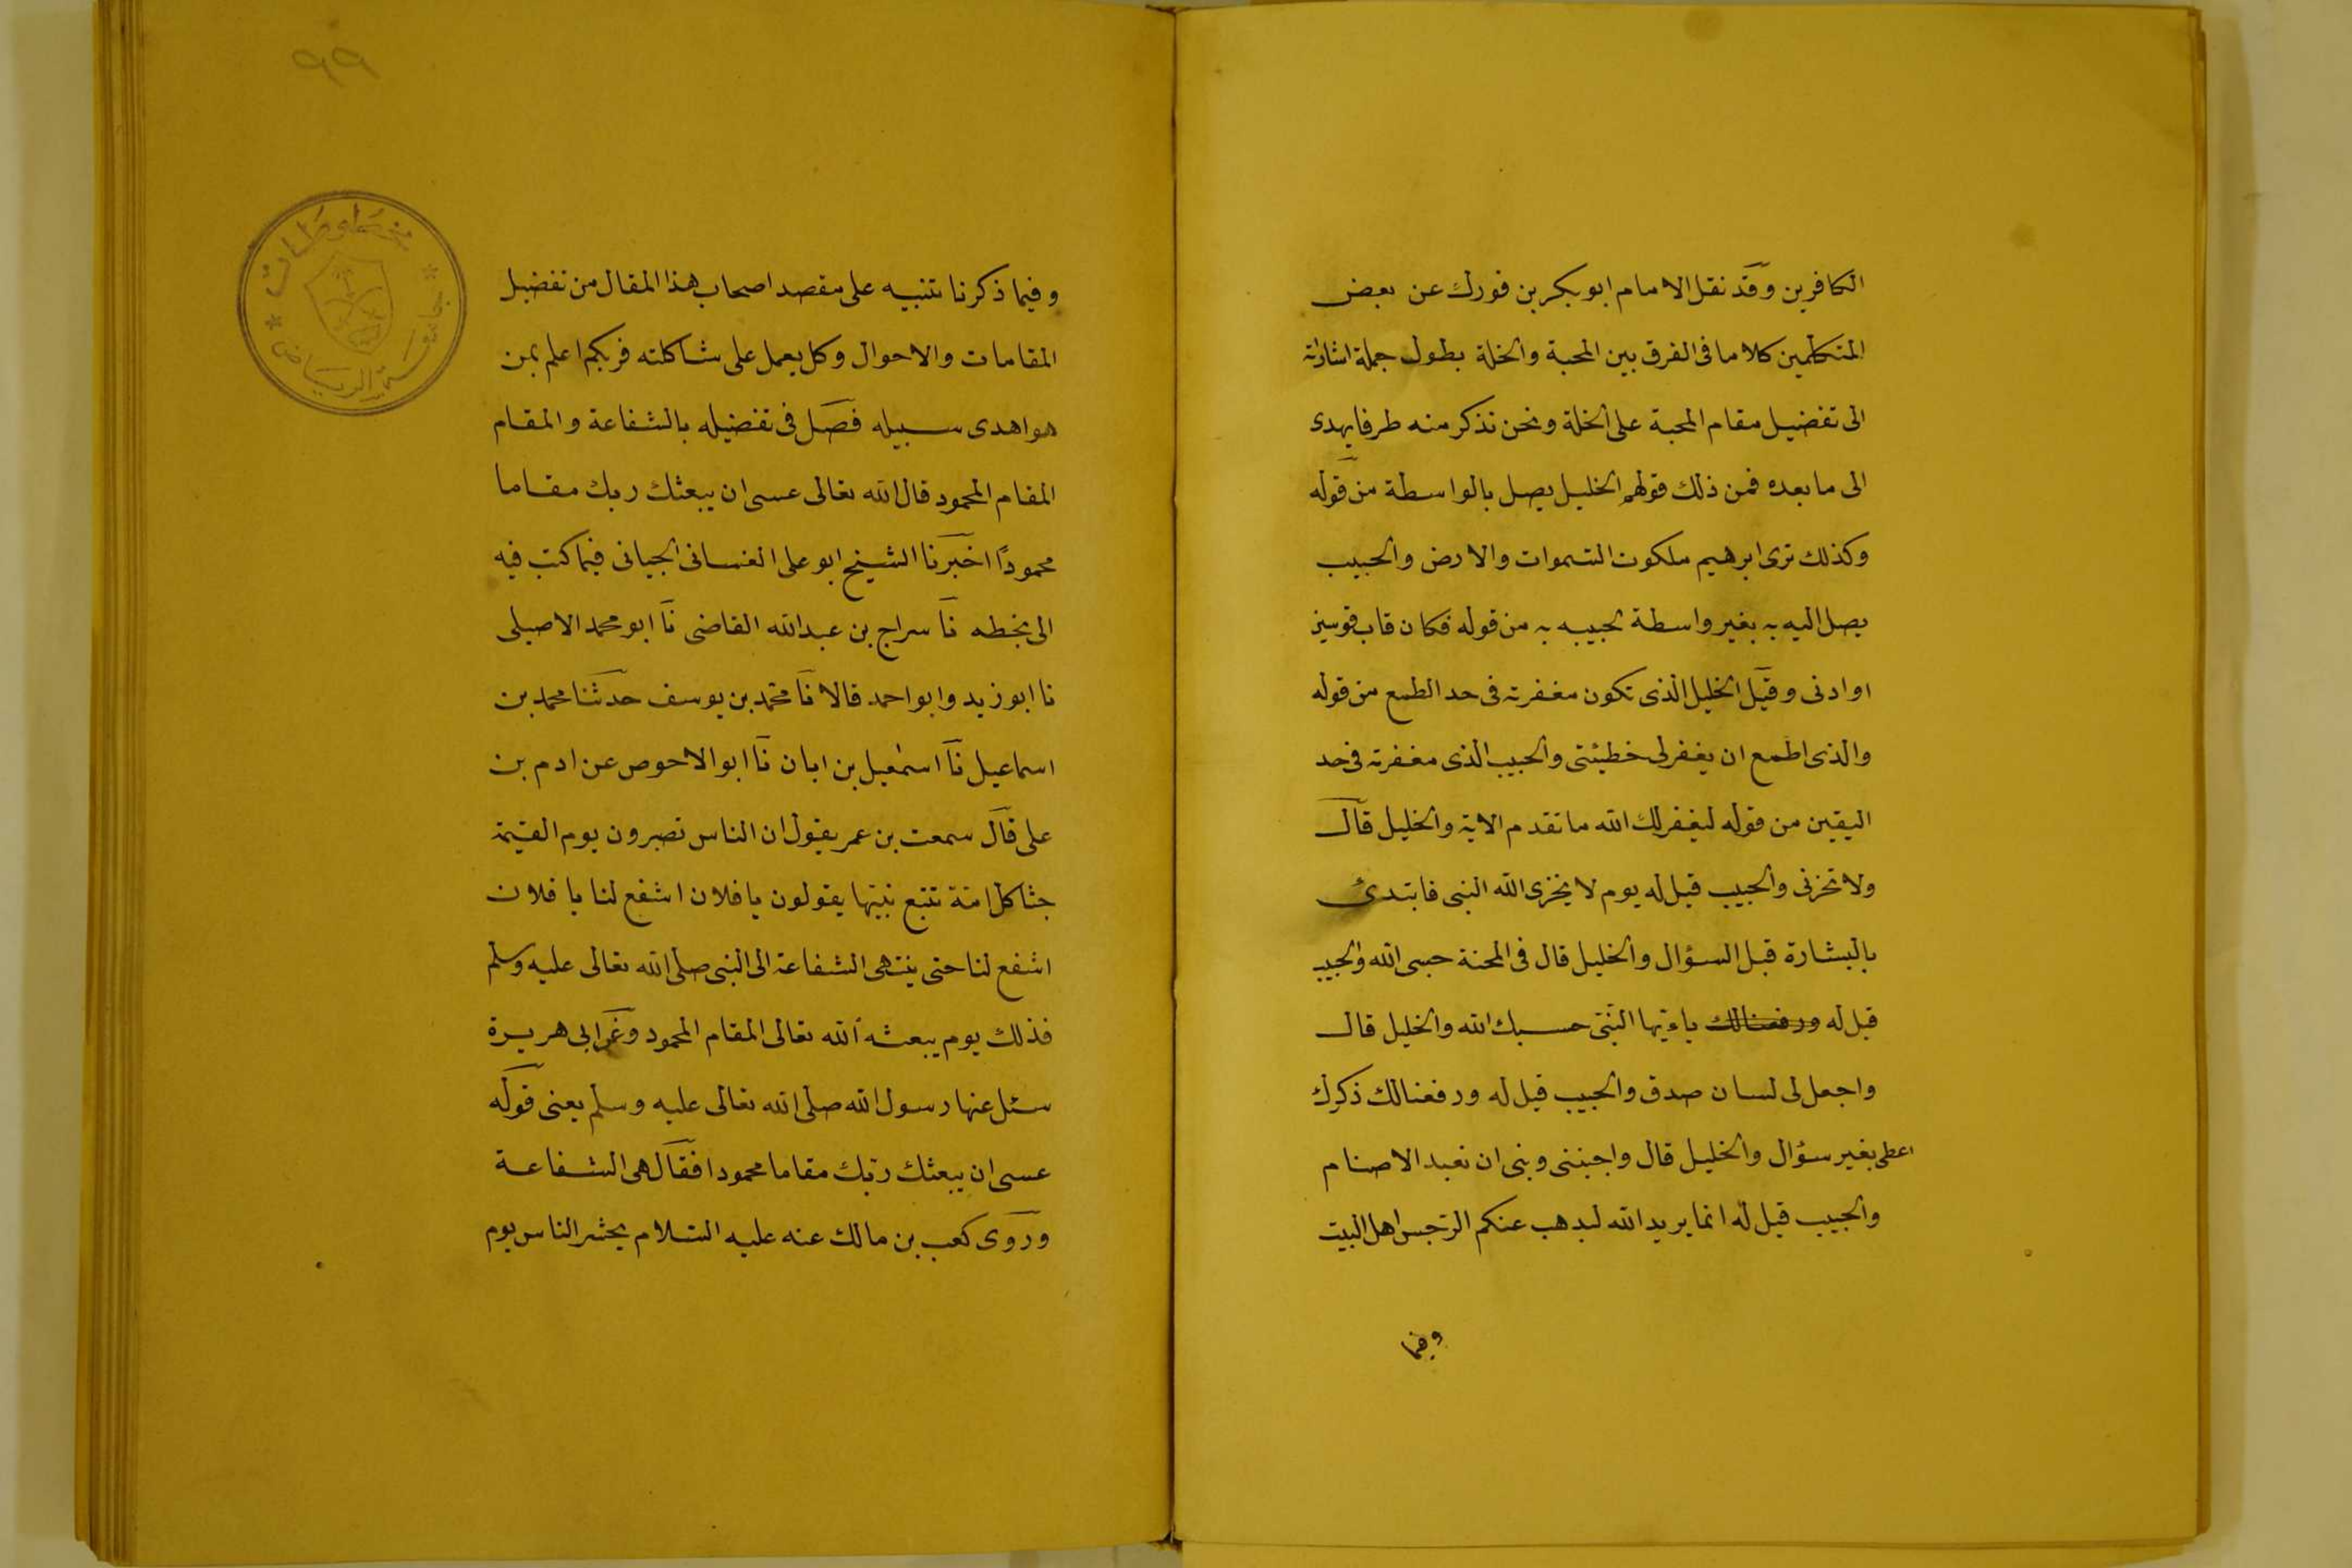 الكافرين وقد نقل الامام ابو بكر بن فورك عن بعض
المتكلمين كلاما فى الفرق بين المحبة والخلة بطول جملة اشاراته
الى تفضيل مقام المحبة على الخلة ونحن نذكر منه طرفا يهدى
الى ما بعده فمن ذلك قولهم الخليل يصل بالواسطة من قوله
وكذلك نرى ابرهيم ملكوت السموات والارض والحبيب
يصل اليه به بغير واسطة لحبيبه به من قوله فكان قاب قوسين
او ادنى وقيل الخليل الذى تكون مغفرته فى حد الطمع من قوله
والذى اطمع ان يغفر لى خطيئتى والحبيب الذى مغفرته فى حد
اليقين من قوله ليغفر لك الله ما تقدم الاية والخليل قال
ولا تخزنى والحبيب قيل له يوم لا يخزى الله النبى فابتدئ
بالبشارة قبل السؤال والخليل قال فى المحنة حسبى الله والحبيب
قيل له ورفعنالك ياءيها النبى حسبك الله والخليل قال
واجعل لى لسان صدق والحبيب قيل له ورفعنالك ذكرك
اعطى بغير سؤال والخليل قال واجنبنى وبنى ان نعبد الاصنام
والحبيب قيل له انما يريد الله ليذهب عنكم الرجس اهل البيت
وفيما
٩٩
مخطوطات
جامعة الرياض
وفيما ذكرنا تنبيه على مقصد اصحاب هذا المقال من تفضيل
المقامات والاحوال وكل يعمل على شاكلته فربكم اعلم بمن
هو اهدى سبيله فصل فى تفضيله بالشفاعة والمقام
المقام المحمود قال الله تعالى عسى ان يبعثك ربك مقاما
محمودًا اخبرنا الشيخ ابو على الغسانى الجيانى فيما كتب فيه
الى بخطه نا سراج بن عبدالله القاضى نا ابو محمد الاصيلى
نا ابو زيد وابو احمد قالا نا محمد بن يوسف حدثنا محمد بن
اسماعيل نا اسمعيل بن ابان نا ابو الاحوص عن ادم بن
على قال سمعت بن عمر يقول ان الناس تصبرون يوم القيمة
جثا كل امة تتبع نبيها يقولون يا فلان اشفع لنا يا فلان
اشفع لنا حتى ينتهى الشفاعة الى النبى صلى الله تعالى عليه وسلم
فذلك يوم يبعثه الله تعالى المقام المحمود وعن ابى هريرة
سئل عنها رسول الله صلى الله تعالى عليه وسلم يعنى قوله
عسى ان يبعثك ربك مقاما محمودا فقال هى الشفاعة
وروى كعب بن مالك عنه عليه السلام يحشر الناس يوم